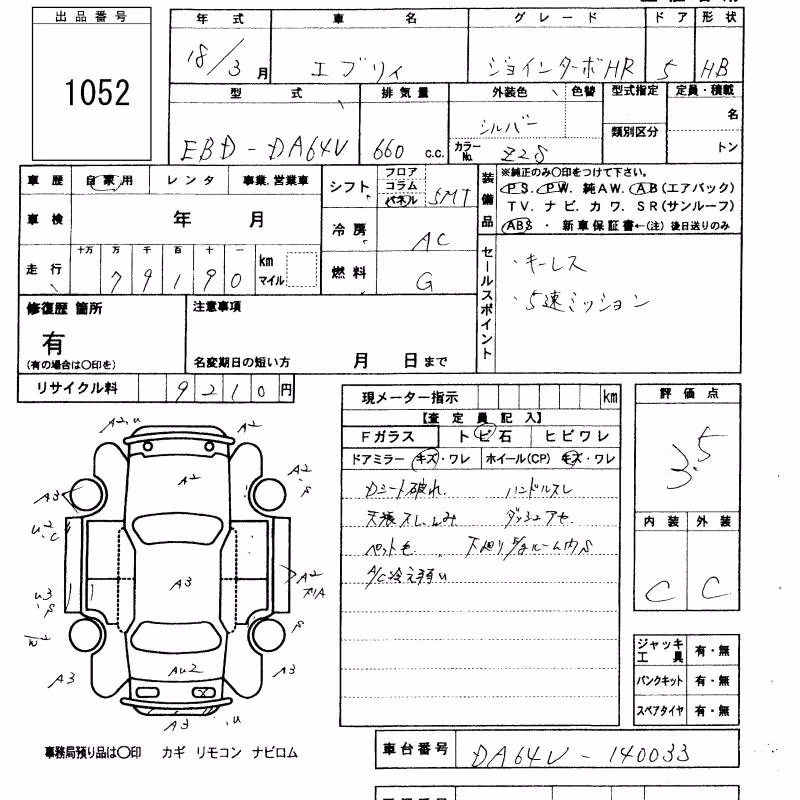 出品番号
1052
年式 車名 グレード ドア 形状
18/3月 エブリィ ジョインターボHR 5 HB
型式 排気量 外装色 色替 型式指定 定員・積載
EBD-DA64V 660 c.c. シルバー 類別区分 名
カラーNo. Z2S トン
車歴 自家用 レンタ 事業.営業車
シフト フロア コラム パネル 5MT
装備品
※純正のみ〇印をつけて下さい。
PS. PW. 純AW. AB(エアバック)
TV. ナビ. カワ. SR(サンルーフ)
ABS ・ 新車保証書←(注)後日送りのみ
車検 年 月
冷房 AC
走行 十万 万 千 百 十 一
79190 km マイル
燃料 G
セールスポイント
・キーレス
・5速ミッション
修復歴 箇所
有
(有の場合は〇印を)
注意事項
名変期日の短い方 月 日まで
リサイクル料 9210円
現メーター指示 km
【査定員記入】
Fガラス トビ石 ヒビワレ
ドアミラー キズ・ワレ ホイール(CP) キズ・ワレ
Dシート破れ. ハンドルスレ
天張スレ.しみ ダッシュアセ.
ペット毛.
A/C冷え弱い
評価点
3.5
内装 外装
C C
A2.u A2
A2
A2.S
A3
u2.C
A3
A2
u3.S
S
A3
Au2
A3
X
A3
.u
ジャッキ工具 有・無
パンクキット 有・無
スペアタイヤ 有・無
事務局預り品は〇印 カギ リモコン ナビロム
車台番号 DA64V-140033